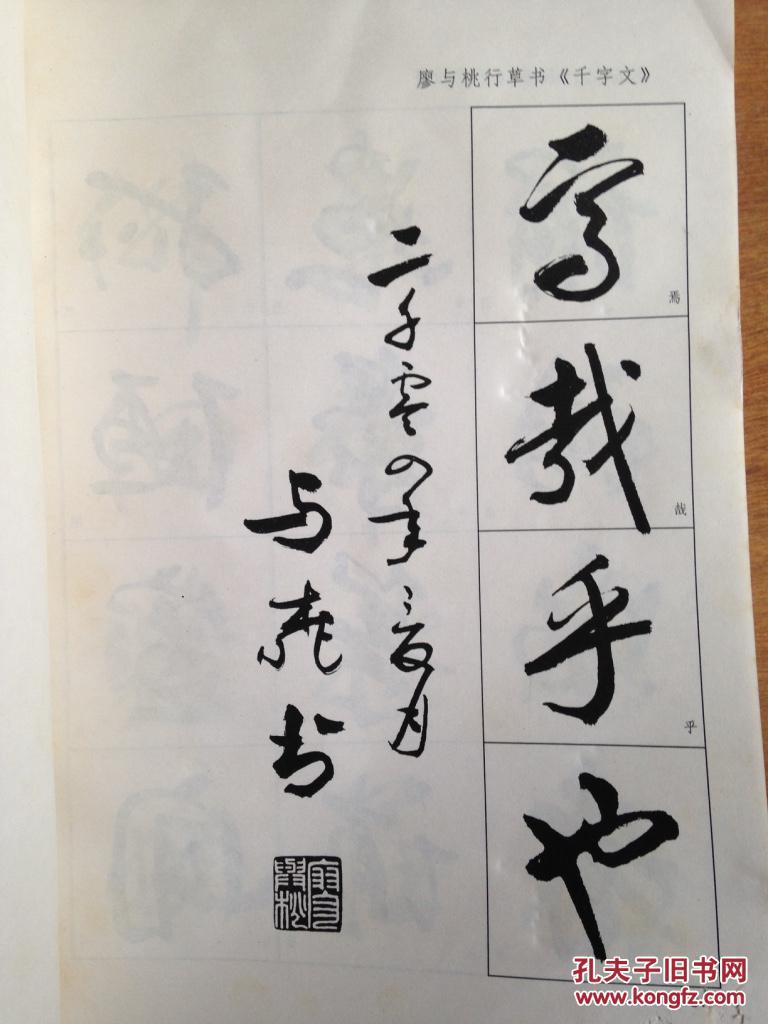 廖与桃行草书《千字文》
焉
焉
哉
哉
乎
乎
也
二千零四年之夏月
与桃书
孔夫子旧书网
www.kongfz.com